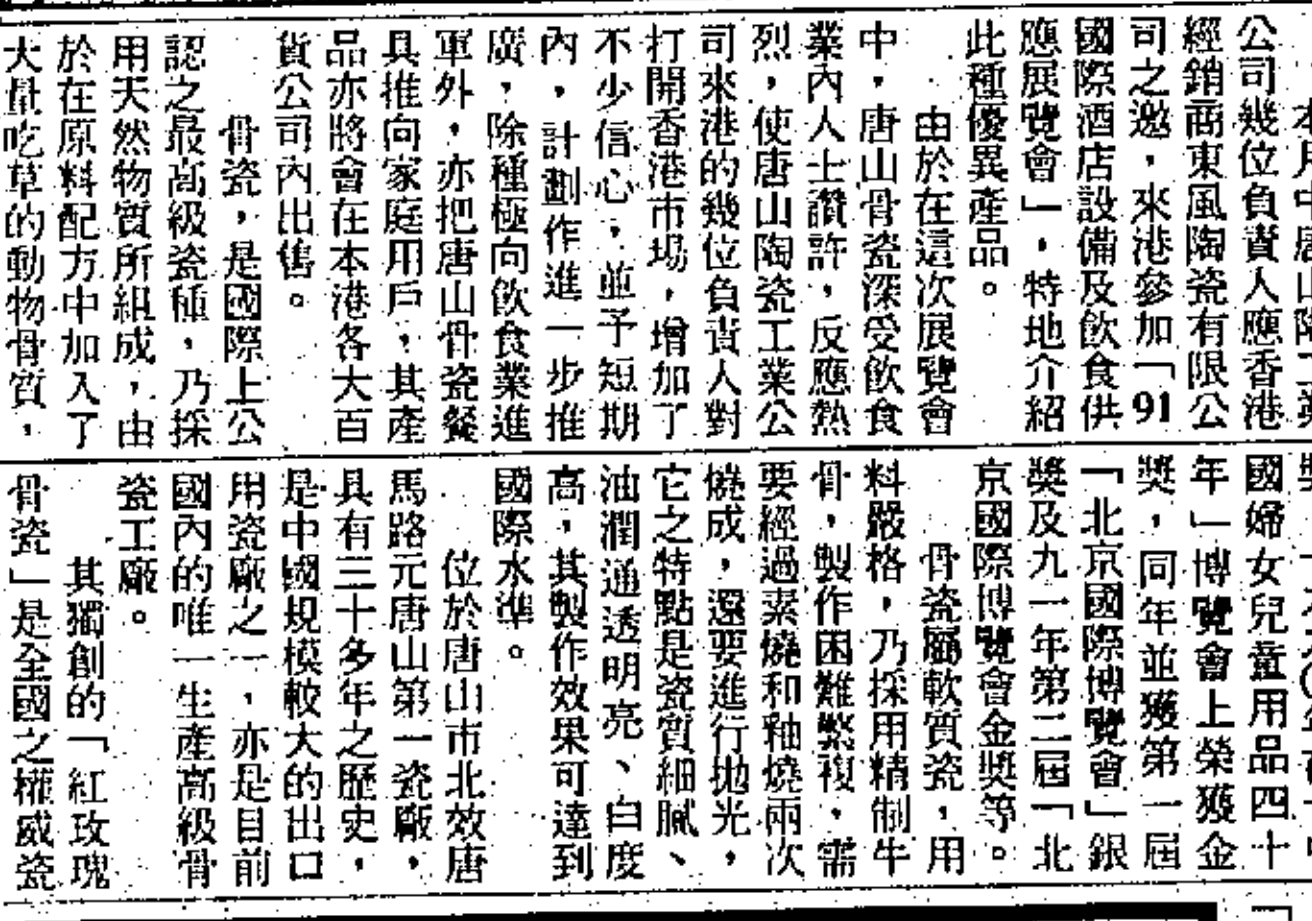 公司幾位負責人應香港
經銷商東風陶瓷有限公
司之邀，來港參加「91
國際酒店設備及飲食供
應展覽會」，特地介紹
此種優異產品。
由於在這次展覽會
中，唐山骨瓷深受飲食
業內人士讚許，反應熱
烈，使唐山陶瓷工業公
司來港的幾位負責人對
打開香港市場，增加了
不少信心，並予短期
內，計劃作進一步推
廣，除種極向飲食業進
軍外，亦把唐山骨瓷餐
具推向家庭用戶，其產
品亦將會在本港各大百
貨公司內出售。
骨瓷，是國際上公
認之最高級瓷種，乃採
用天然物質所組成，由
於在原料配方中加入了
大量吃草的動物骨質，
國婦女兒童用品四十
年」博覽會上榮獲金
獎，同年並獲第一屆
「北京國際博覽會」銀
獎及九一年第二屆「北
京國際博覽會金獎等。
骨瓷屬軟質瓷，用
料嚴格，乃採用精制牛
骨，製作困難繁複，需
要經過素燒和釉燒兩次
燒成，還要進行拋光，
它之特點是瓷質細膩、
油潤通透明亮、白度
高，其製作效果可達到
國際水準。
位於唐山市北效唐
馬路元唐山第一瓷廠，
具有三十多年之歷史，
是中國規模較大的出口
用瓷廠之一，亦是目前
國內的唯一生產高級骨
瓷工廠。
其獨創的「紅玫瑰
骨瓷」是全國之權威瓷